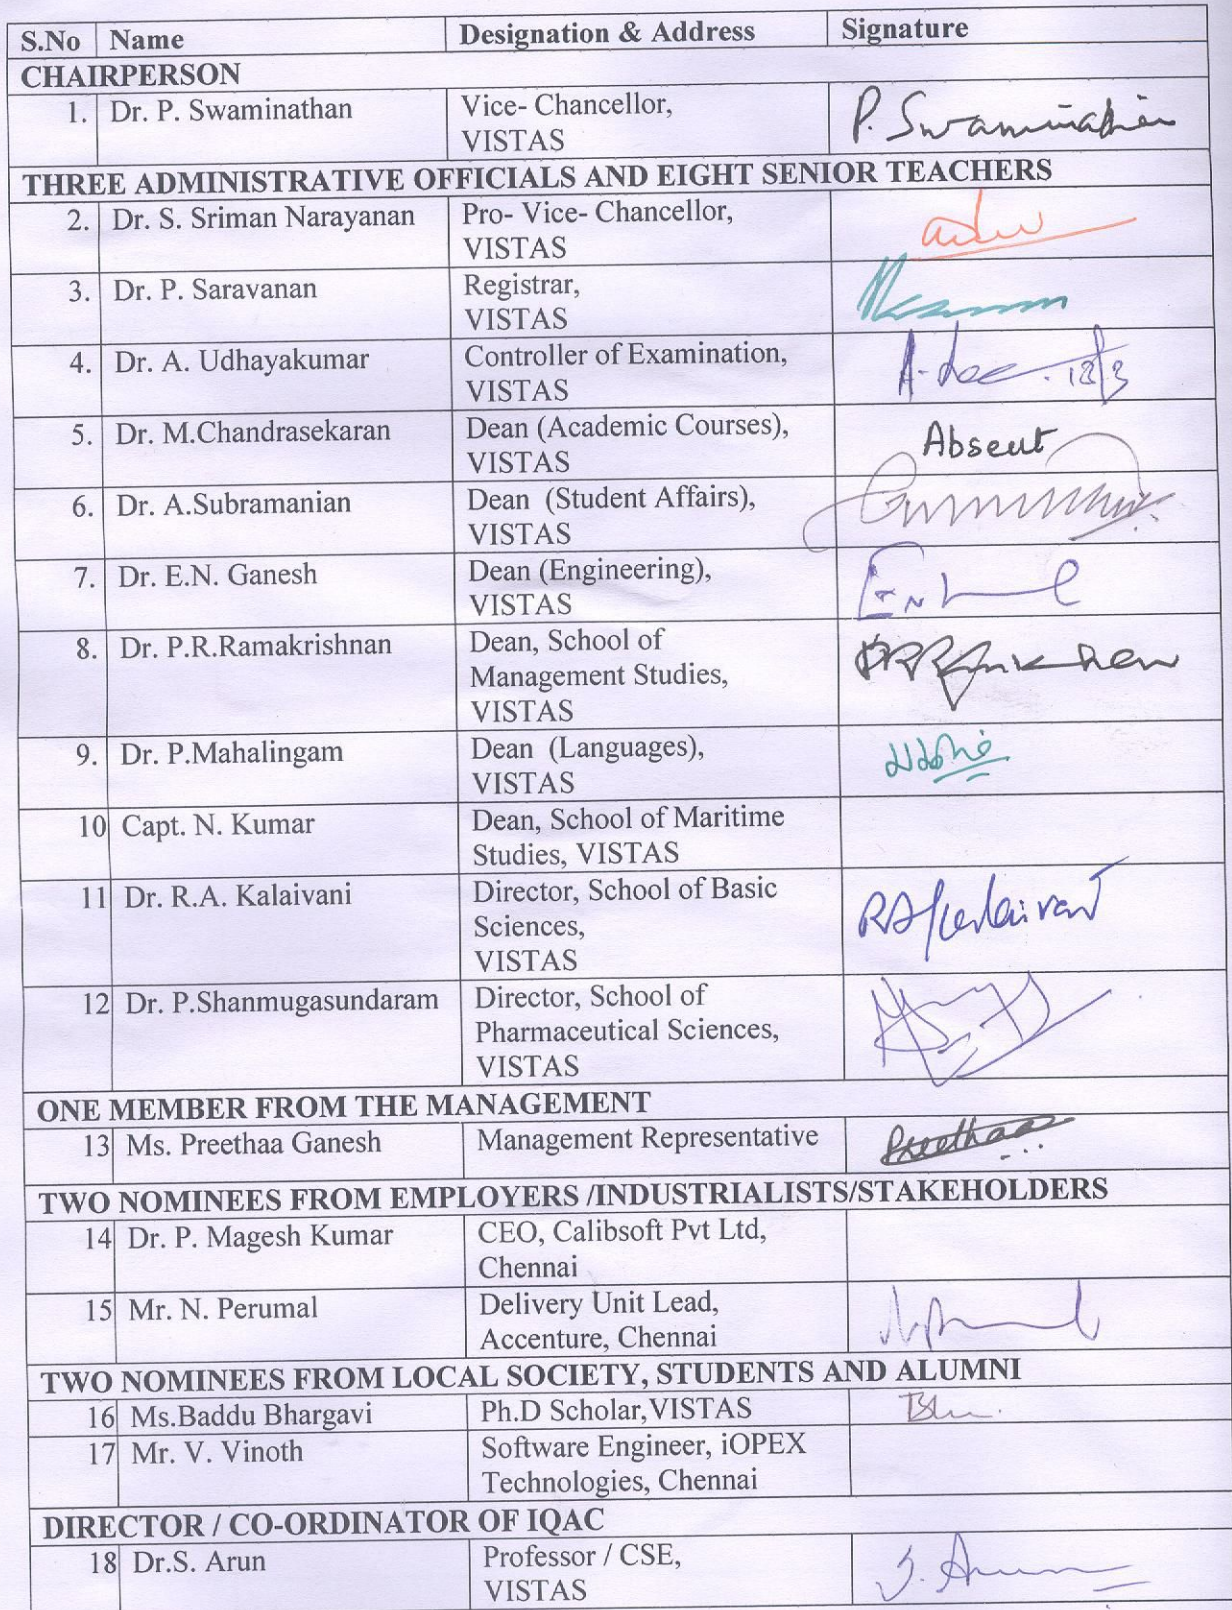 S.No Name Designation & Address Signature
CHAIRPERSON
1. Dr. P. Swaminathan Vice- Chancellor, P. Swaminathan
VISTAS
THREE ADMINISTRATIVE OFFICIALS AND EIGHT SENIOR TEACHERS
2. Dr. S. Sriman Narayanan Pro- Vice- Chancellor,
VISTAS
3. Dr. P. Saravanan Registrar,
VISTAS
4. Dr. A. Udhayakumar Controller of Examination,
VISTAS
5. Dr. M.Chandrasekaran Dean (Academic Courses), Absent
VISTAS
6. Dr. A.Subramanian Dean (Student Affairs),
VISTAS
7. Dr. E.N. Ganesh Dean (Engineering),
VISTAS
8. Dr. P.R.Ramakrishnan Dean, School of
Management Studies,
VISTAS
9. Dr. P.Mahalingam Dean (Languages),
VISTAS
10 Capt. N. Kumar Dean, School of Maritime
Studies, VISTAS
11 Dr. R.A. Kalaivani Director, School of Basic
Sciences, RAKalaivani
VISTAS
12 Dr. P.Shanmugasundaram Director, School of
Pharmaceutical Sciences,
VISTAS
ONE MEMBER FROM THE MANAGEMENT
13 Ms. Preethaa Ganesh Management Representative Preethaa
TWO NOMINEES FROM EMPLOYERS /INDUSTRIALISTS/STAKEHOLDERS
14 Dr. P. Magesh Kumar CEO, Calibsoft Pvt Ltd,
Chennai
15 Mr. N. Perumal Delivery Unit Lead,
Accenture, Chennai
TWO NOMINEES FROM LOCAL SOCIETY, STUDENTS AND ALUMNI
16 Ms.Baddu Bhargavi Ph.D Scholar,VISTAS
17 Mr. V. Vinoth Software Engineer, iOPEX
Technologies, Chennai
DIRECTOR / CO-ORDINATOR OF IQAC
18 Dr.S. Arun Professor / CSE, S. Arun
VISTAS